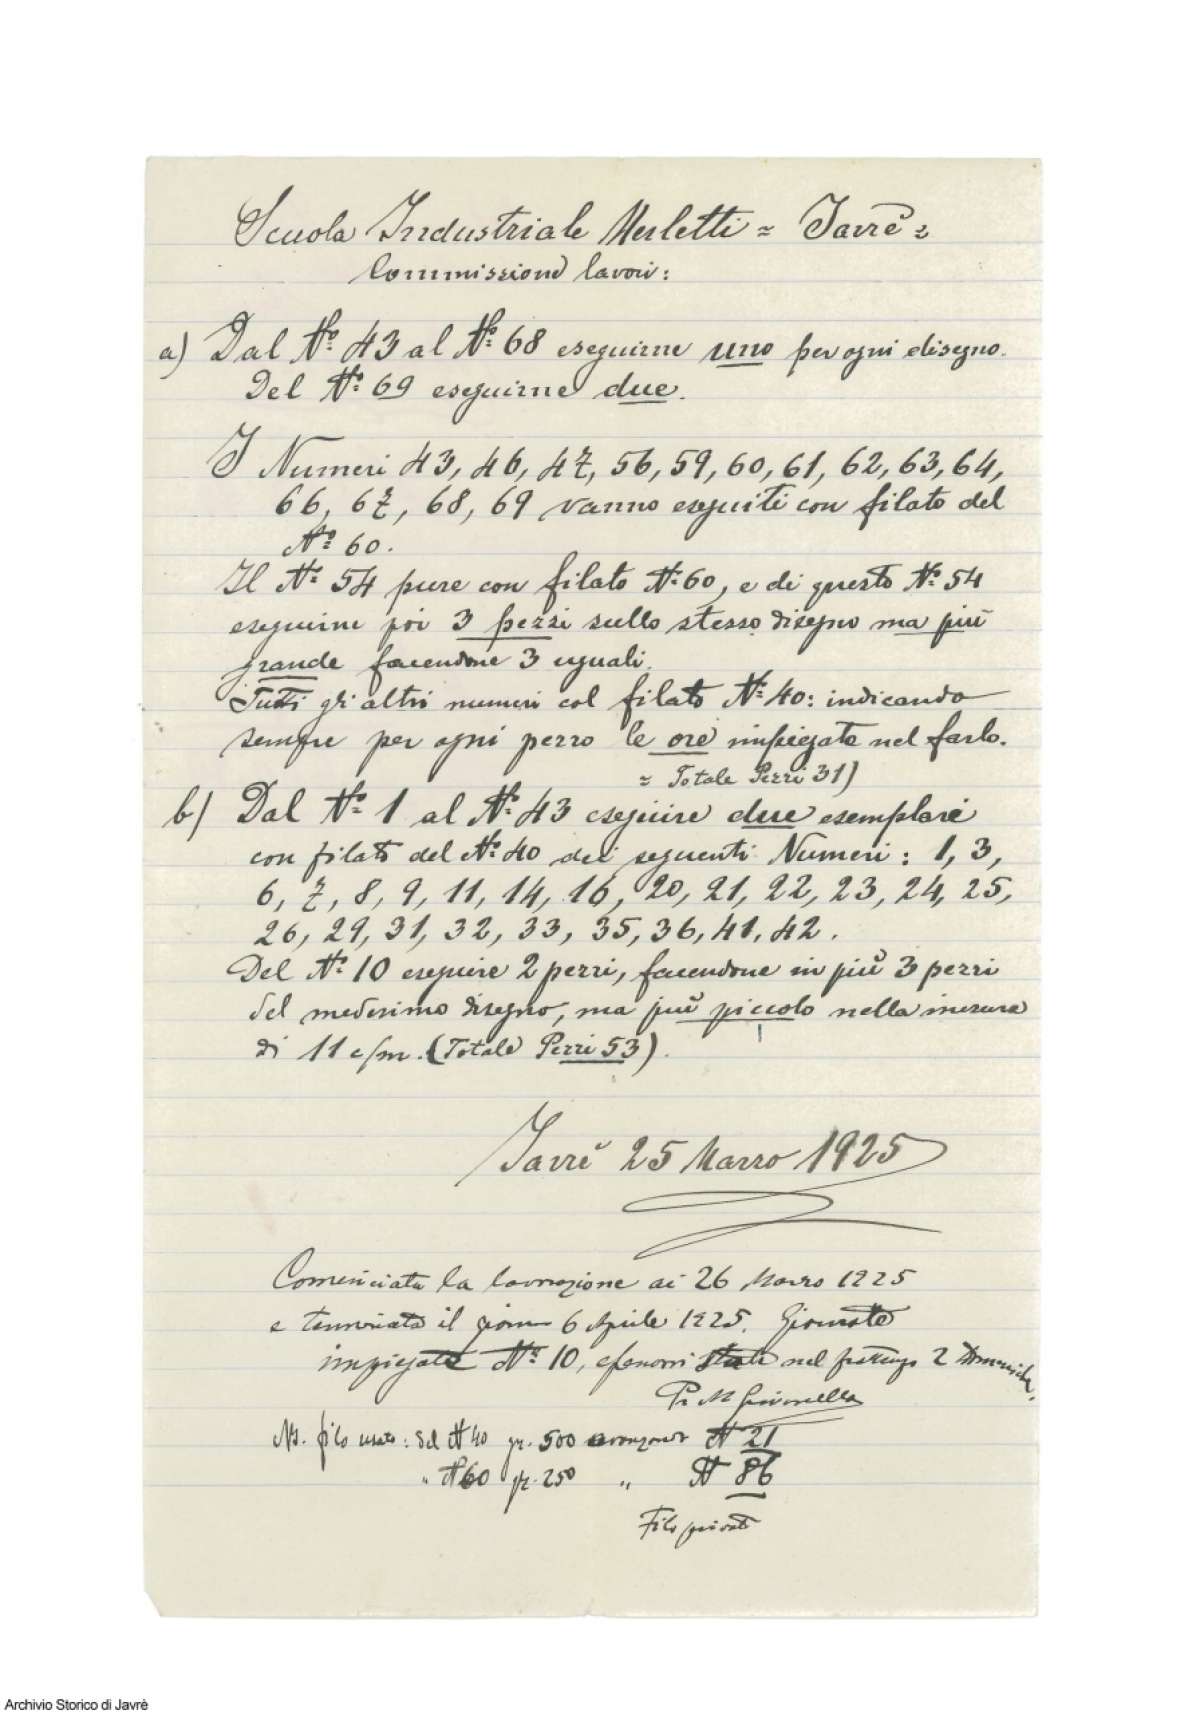 Scuola Industriale Merletti = Javrè =
Commissione lavori:
a) Dal No. 43 al No. 68 eseguirne uno per ogni disegno.
Del No. 69 eseguirne due.
I Numeri 43, 46, 47, 56, 59, 60, 61, 62, 63, 64,
66, 67, 68, 69 vanno eseguiti con filato del
No. 60.
Il No. 54 pure con filato No. 60, e di questo No. 54
eseguirne poi 3 pezzi sullo stesso disegno ma più
grande facendone 3 uguali.
Tutti gli altri numeri col filato No. 40: indicando
sempre per ogni pezzo le ore impiegate nel farlo.
= Totale Pezzi 31)
b) Dal No. 1 al No. 43 eseguire due esemplari
con filato del No. 40 dei seguenti Numeri: 1, 3,
6, 7, 8, 9, 11, 14, 16, 20, 21, 22, 23, 24, 25,
26, 29, 31, 32, 33, 35, 36, 41, 42.
Del No. 10 eseguire 2 pezzi, facendone in più 3 pezzi
del medesimo disegno, ma più piccolo nella misura
di 11 c/m. (Totale Pezzi 53).
Javrè 25 Marzo 1925
Cominciata la lavorazione ai 26 Marzo 1925
e terminata il giorno 6 Aprile 1925. Giornate
impiegate No. 10, nel frattempo 2 Domeniche.
N. filo usato: del N 40 gr. 500 avanzando N 21
" N 60 gr. 250 " N 86
Filo privato
Archivio Storico di Javrè